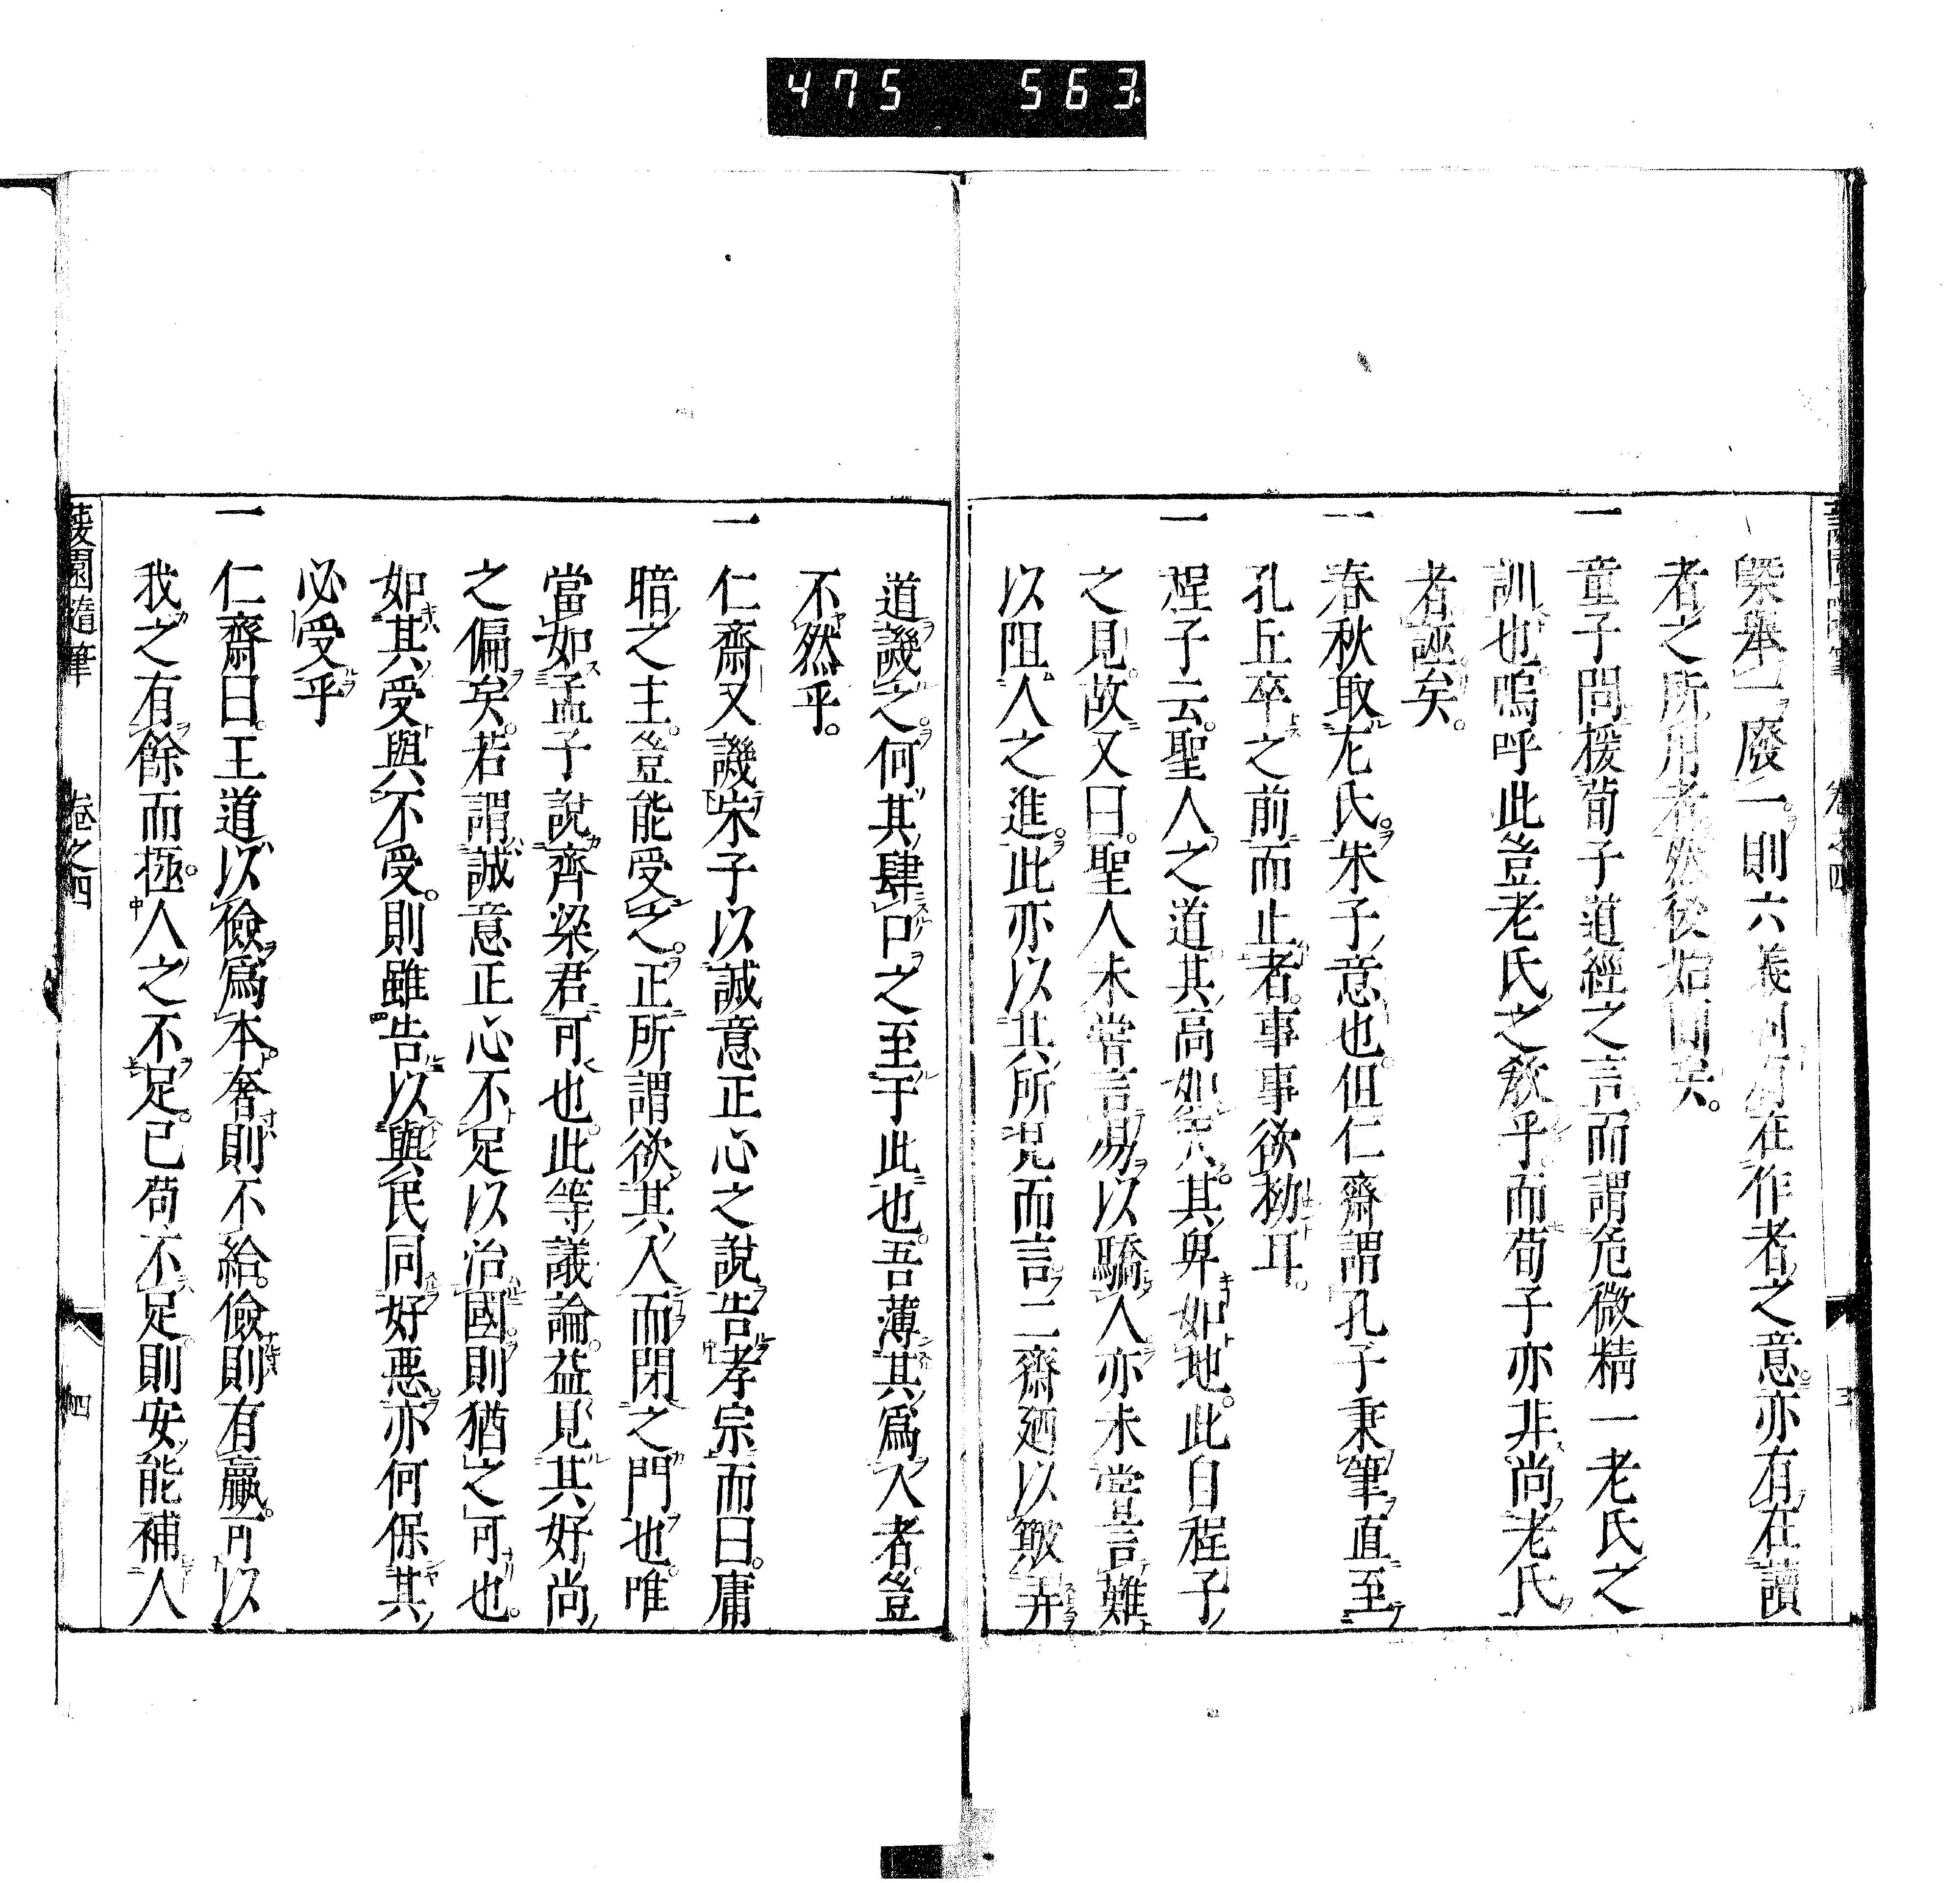 475 563
槩舉一廢一。則六義有在作者之意。亦有在讀
者之所用者。然後始則矣。
一童子問援荀子道經之言而謂危微精一老氏之
訓也。嗚呼此豈老氏之敎乎。而荀子亦非尚老氏
者。誣矣。
一春秋取左氏。朱子意也。但仁齋謂孔子秉筆直至
孔丘卒之前而止者。事事欲拗耳。
一程子云。聖人之道。其高如天。其卑如地。此自程子
之見。故又曰。聖人未嘗言易以驕人。亦未嘗言難
以阻人之進。此亦以其所見而言。二齋廼以簸弄
道譏之。何其肆口之至于此也。吾薄其爲人者。豈
不然乎。
一仁齋又譏朱子以誠意正心之說告孝宗而曰。庸
暗之主。豈能受之。正所謂欲其入而閉之門也。唯
當如孟子說齊梁君可也。此等議論。益見其好尚
之偏矣。若謂誠意正心不足以治國。則猶之可也。
如其受與不受。則雖告以與民同好惡。亦何保其
必受乎
一仁齋曰。王道以儉爲本。奢則不給。儉則有贏。可以
我之有餘而拯人之不足。已苟不足。則安能補人
蘐園隨筆 卷之四 四